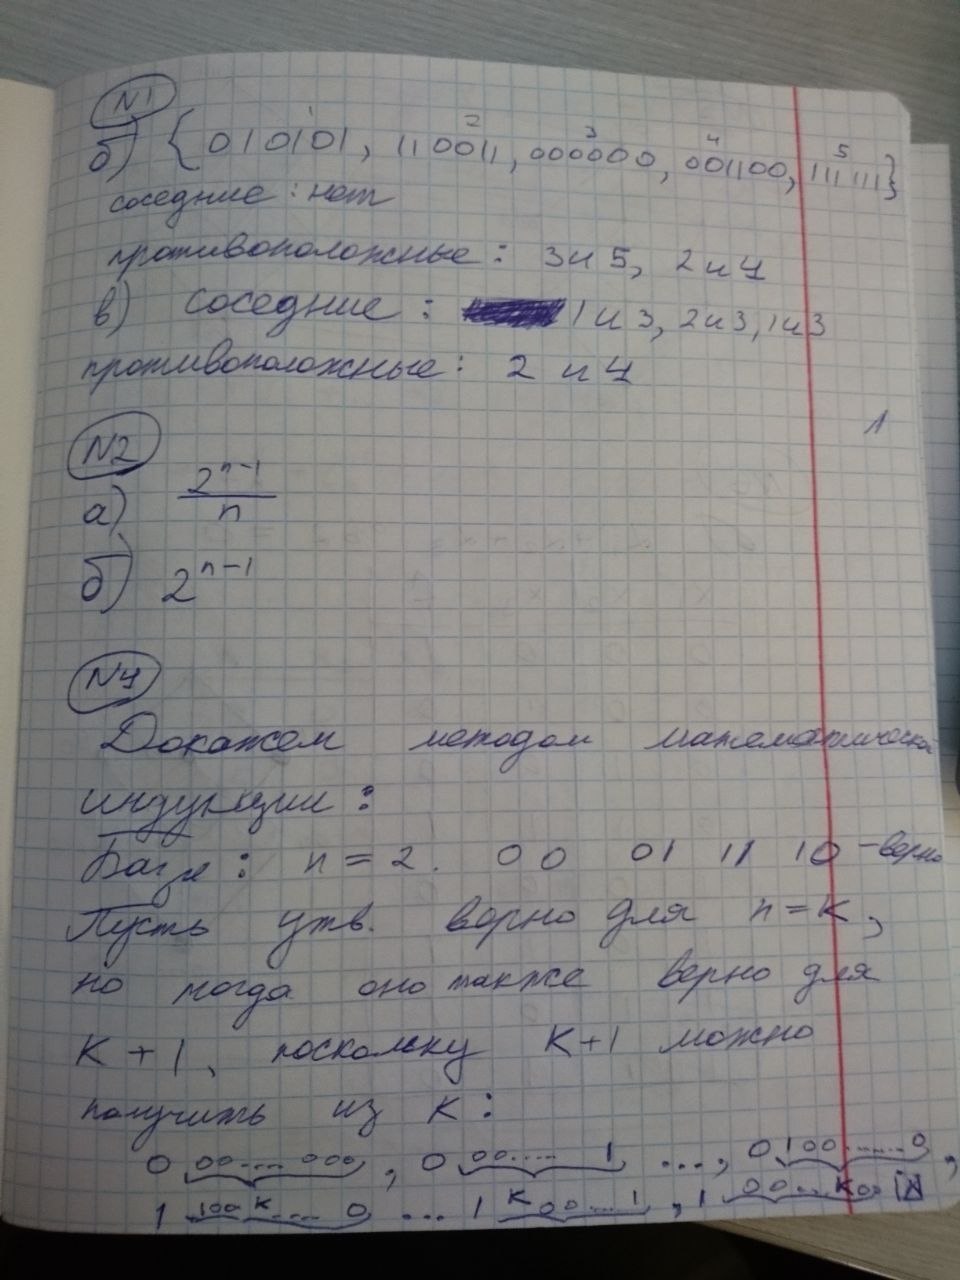 N1
б) {010101, 110011, 000000, 001100, 111111}
1 2 3 4 5
соседние: нет
противоположные: 3 и 5, 2 и 4
в) соседние: 1 и 3, 2 и 3, 1 и 3
противоположные: 2 и 4
1
N2
а) 2^(n-1)/n
б) 2^(n-1)
N4
Докажем методом математической
индукции:
База: n = 2. 00 01 11 10 - верно
Пусть утв. верно для n = K,
но тогда оно также верно для
K + 1, поскольку K+1 можно
получить из K:
0 00....000, 0 00.... 1 ...., 0 100......0,
1 100 K.... 0 ... 1 K 00...1, 1 00...K00